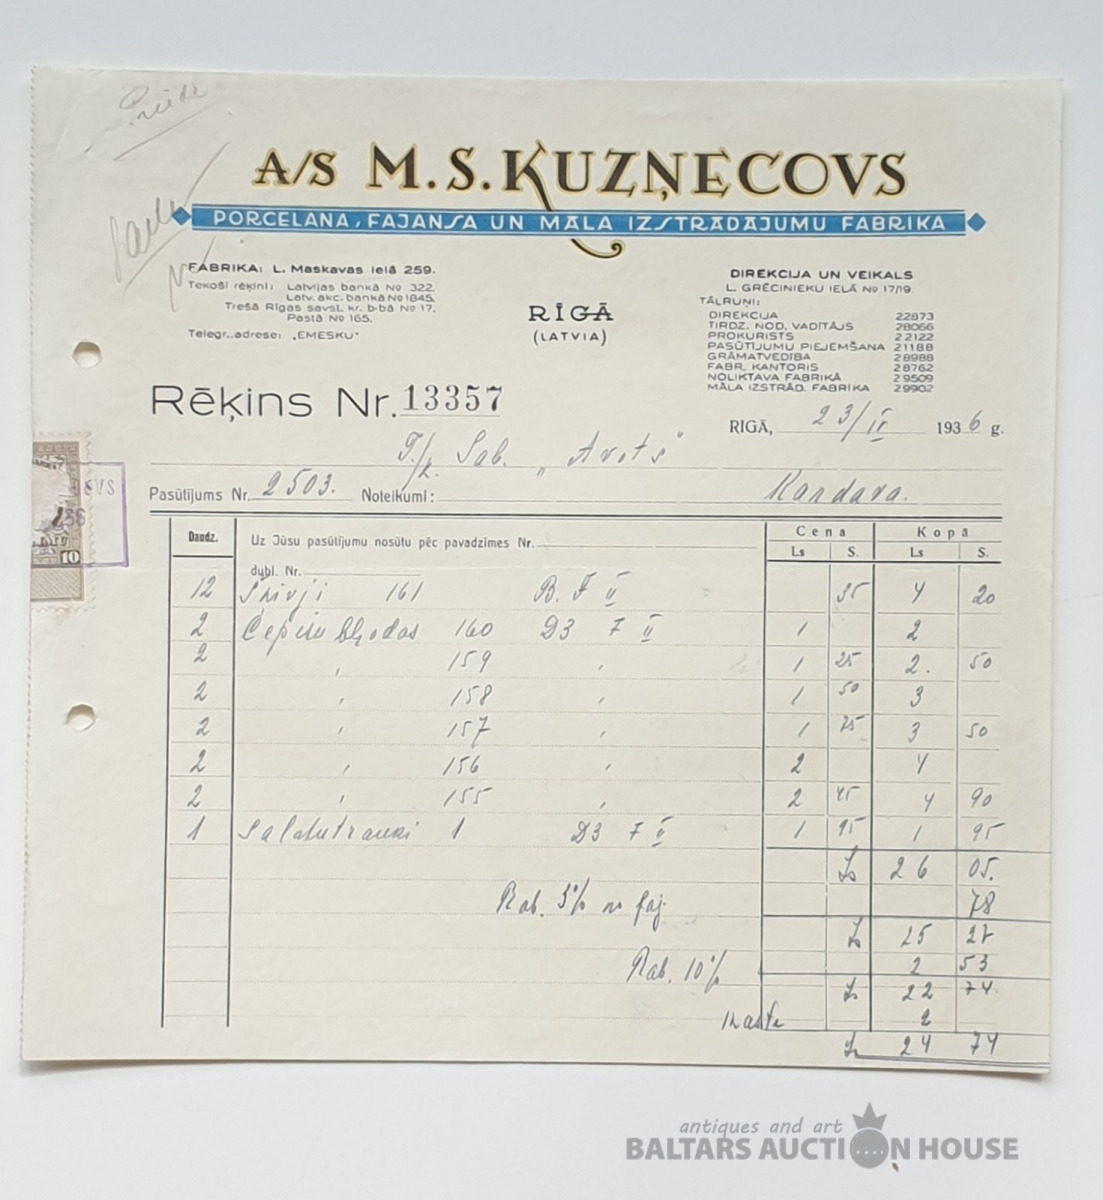 A/S M.S.KUZŅECOVS
PORCELANA, FAJANSA UN MĀLA IZSTRĀDĀJUMU FABRIKA
FABRIKA: L. Maskavas ielā 259.
Tekoši rēķini: Latvijas bankā No 322.
Latv. akc. bankā No 1845.
Trešā Rīgas savst. kr. b-bā No 17.
Pastā No 165.
Telegr. adrese: „EMESKU"
RĪGĀ
(LATVIA)
DIREKCIJA UN VEIKALS
L. GRĒCINIEKU IELĀ No 17/19.
TĀLRUŅI:
DIREKCIJA 22873
TIRDZ. NOD. VADĪTĀJS 28066
PROKURISTS 22122
PASŪTĪJUMU PIEJEMŠANA 21188
GRĀMATVEDĪBA 28988
FABR. KANTORIS 28762
NOLIKTAVA FABRIKĀ 29509
MĀLA IZSTRĀD. FABRIKA 29902
Rēķins Nr. 13357
RĪGĀ, 23/IV 1936 g.
Sab. „Avots"
Pasūtījums Nr. 2503. Noteikumi: Kandava.
Daudz. Uz Jūsu pasūtījumu nosūtu pēc pavadzīmes Nr. Cena Kopā
Ls S. Ls S.
dubl. Nr.
12 Šķīvji 161 B. F II 35 4 20
2 Cepešu bļodas 160 D3 F II 1 2
2 " 159 " 1 25 2. 50
2 " 158 " 1 50 3
2 " 157 " 1 75 3 50
2 " 156 " 2 4
2 " 155 " 2 45 4 90
1 Salatu trauki 1 D3 F II 1 95 1 95
Ls 26 05.
Rab. 3% no faj. 78
Ls 25 27
Rab. 10% 2 53
Ls 22 74
Kaste 2
Ls 24 74
10
antiques and art
BALTARS AUCTION HOUSE